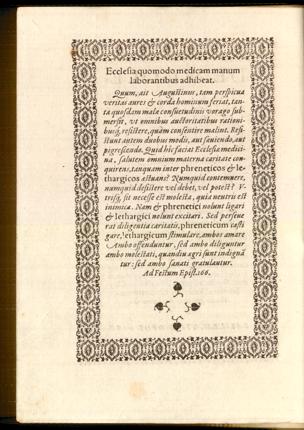 Ecclesia quomodo medicam manum
laborantibus adhibeat.
Quum, ait Augustinus, tam perspicua
veritas aures & corda hominum feriat, tan-
ta quosdam malæ consuetudinis vorago sub-
mersit, vt omnibus auctoritatibus rationi-
busq́, resistere, quàm consentire malint. Resi-
stunt autem duobus modis, aut sæuiendo, aut
pigrescendo. Quid hîc faciat Ecclesiæ medici-
na, salutem omnium materna caritate con-
quirens, tanquam inter phreneticos & le-
thargicos æstuans? Numquid contemnere,
numquid desistere vel debet, vel potest? V-
trisq́, sit necesse est molesta, quia neutris est
inimica. Nam & phrenetici nolunt ligari
& lethargici nolunt excitari. Sed perseue-
rat diligentia caritatis, phreneticum casti
gare, lethargicum stimulare, ambos amare
Ambo offenduntur, sed ambo diliguntur
ambo molestati, quandiu ægri sunt indignã
tur: sed ambo sanati gratulantur.
Ad Festum Epist. 166.